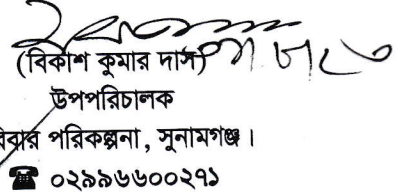 (বিকাশ কুমার দাস)
উপপরিচালক
পরিকল্পনা, সুনামগঞ্জ।
☎ ০২৯৯৬৬০০২৭১